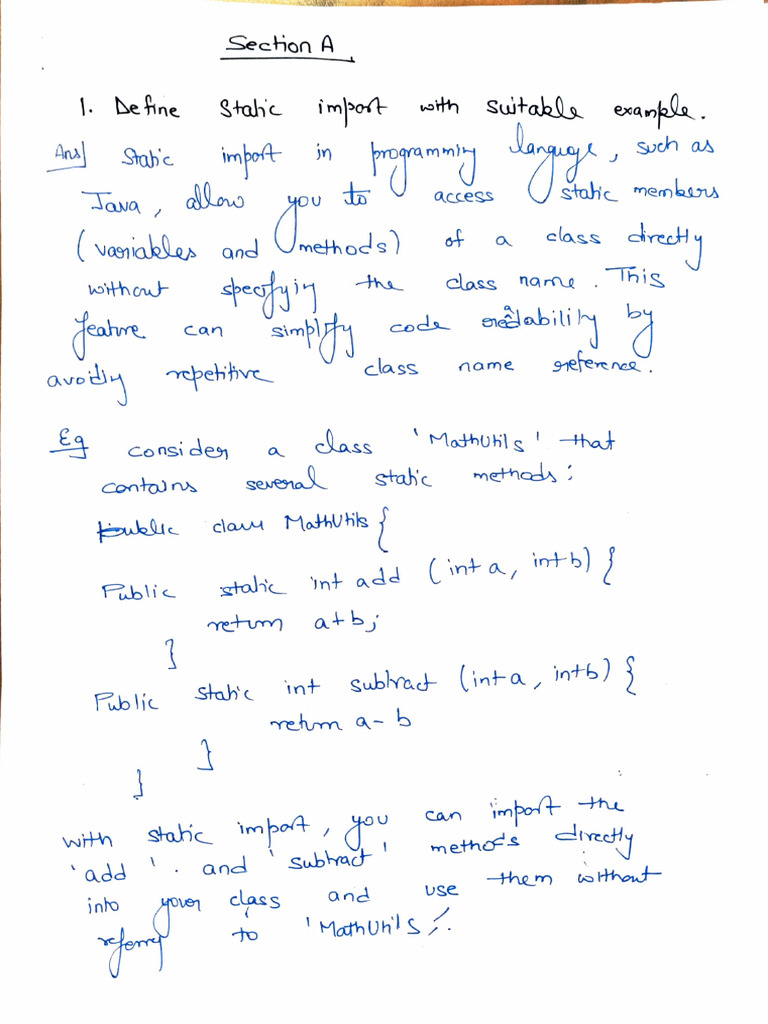 Section A
1. Define Static import with suitable example.
Ans] Static import in programming language, such as
Java, allow you to access static members
(variables and methods) of a class directly
without specifying the class name. This
feature can simplify code readability by
avoidly repetitive class name reference.
Eg consider a class 'MathUtils' that
contains several static methods:
public class MathUtils {
Public static int add (int a, int b) {
return a+b;
}
Public static int subtract (int a, int b) {
return a-b
}
}
with static import, you can import the
'add'. and 'subtract' methods directly
into your class and use them without
referring to 'MathUtils'.